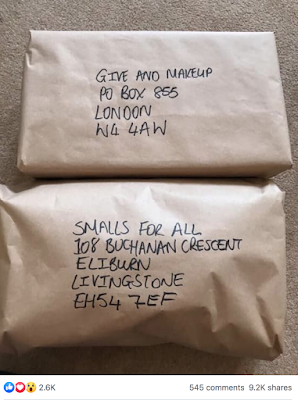 GIVE AND MAKEUP
PO BOX 855
LONDON
W4 4AW
SMALLS FOR ALL
108 BUCHANAN CRESCENT
ELIBURN
LIVINGSTONE
EH54 7EF
2.6K 545 comments 9.2K shares